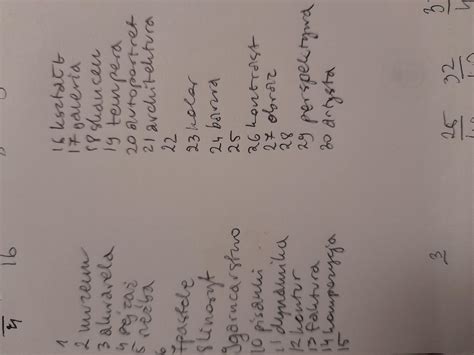 4 16
1
2 muzeum
3 akwarela
4 pejzaż
5 rzeźba
6
7 pastele
8 linoryt
9 garncarstwo
10 pisanki
11 dynamika
12 kontur
13 faktura
14 kompozycja
15
16 kształt
17 galeria
18 skansen
19 tempera
20 autoportret
21 architektura
22
23 kolor
24 barwa
25
26 kontrast
27 obraz
28
29 perspektywa
30 artysta
3 25 32